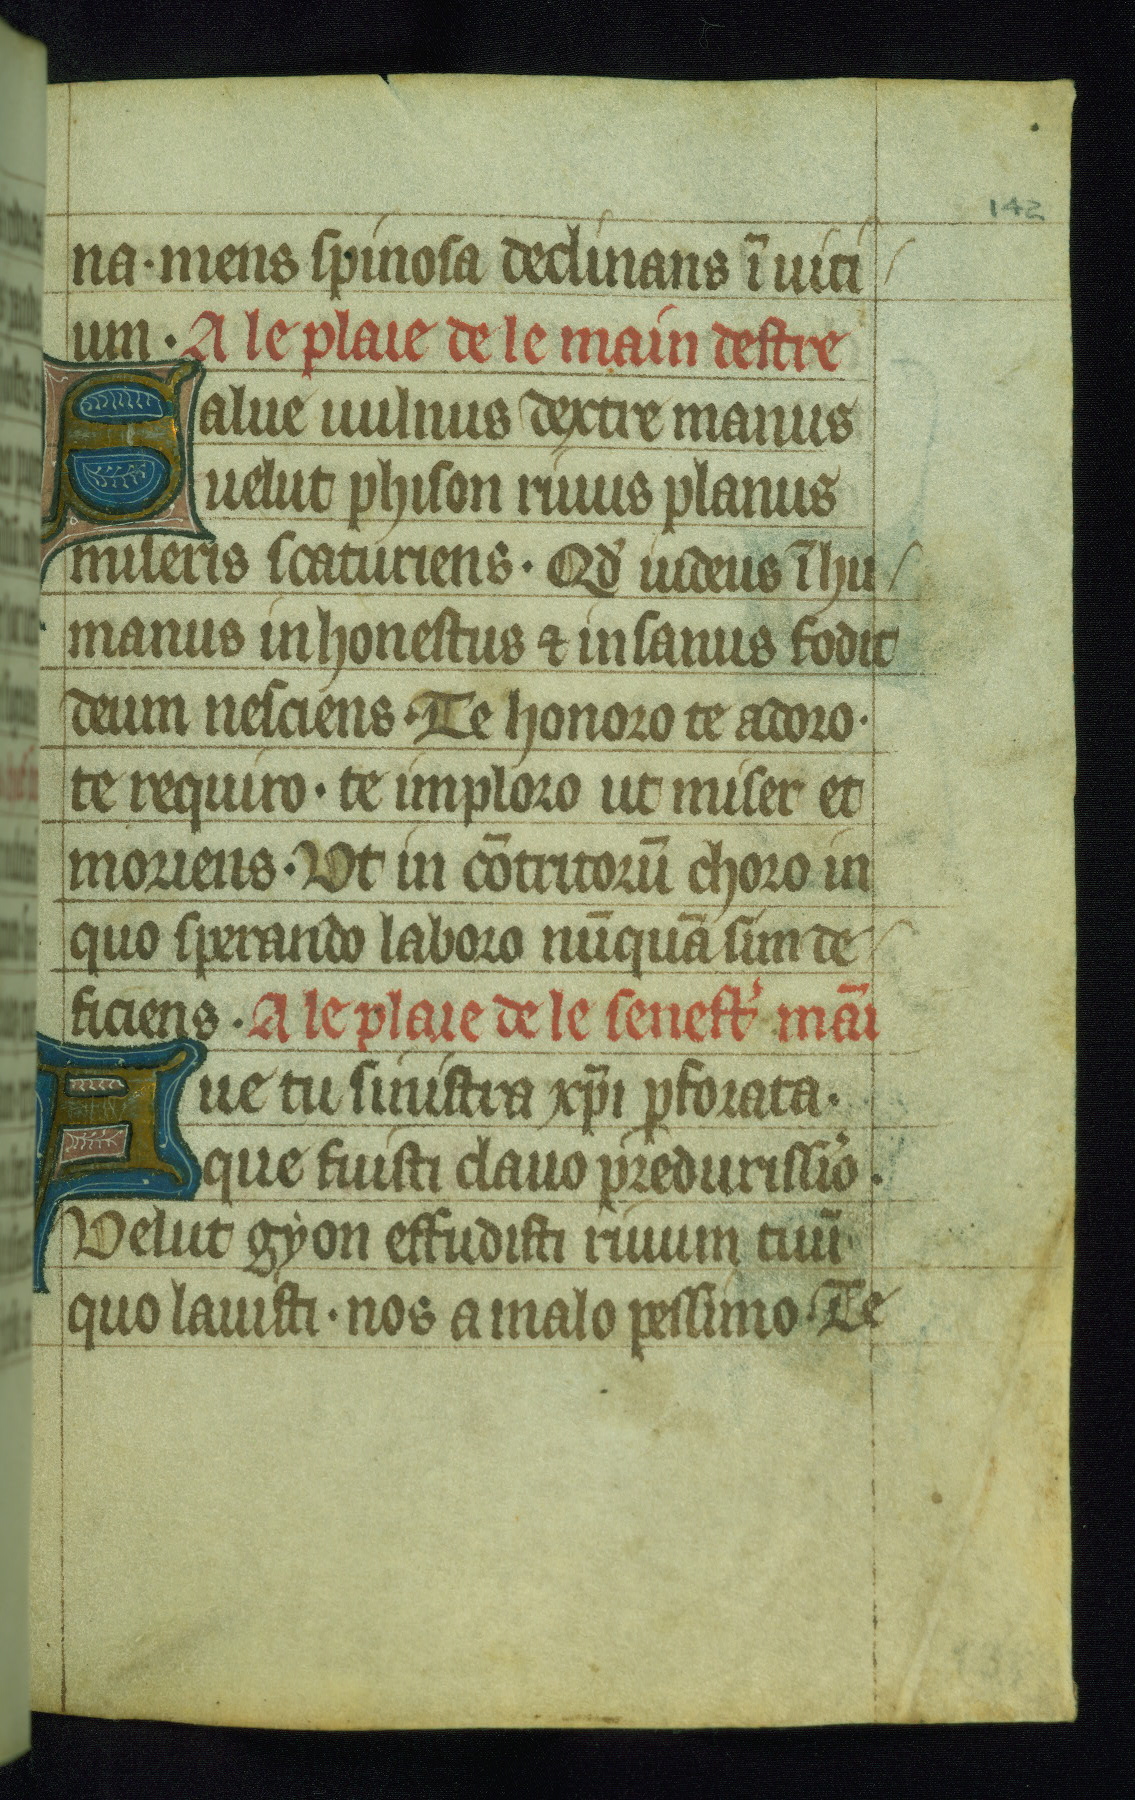 142
na · mens spinosa declinans ī uici
um · A le plaie de le main destre
Salue uulnus dextre manus
uelut phison riuus planus
miseris scaturiens · Qd' iudeus īhu
manus inhonestus ⁊ insanus fodit
deum nesciens · Te honoro te adoro ·
te requiro · te imploro ut miser et
moriens · Vt in cōtritorū choro in
quo sperando laboro nūquā sim de
ficiens · A le plaie de le senest' māi
Aue tu sinistra xp̄i pforata ·
que fuisti clauo p̄edurissīo ·
Velut gyon effudisti riuum tuū
quo lauisti · nos a malo pessimo · Te